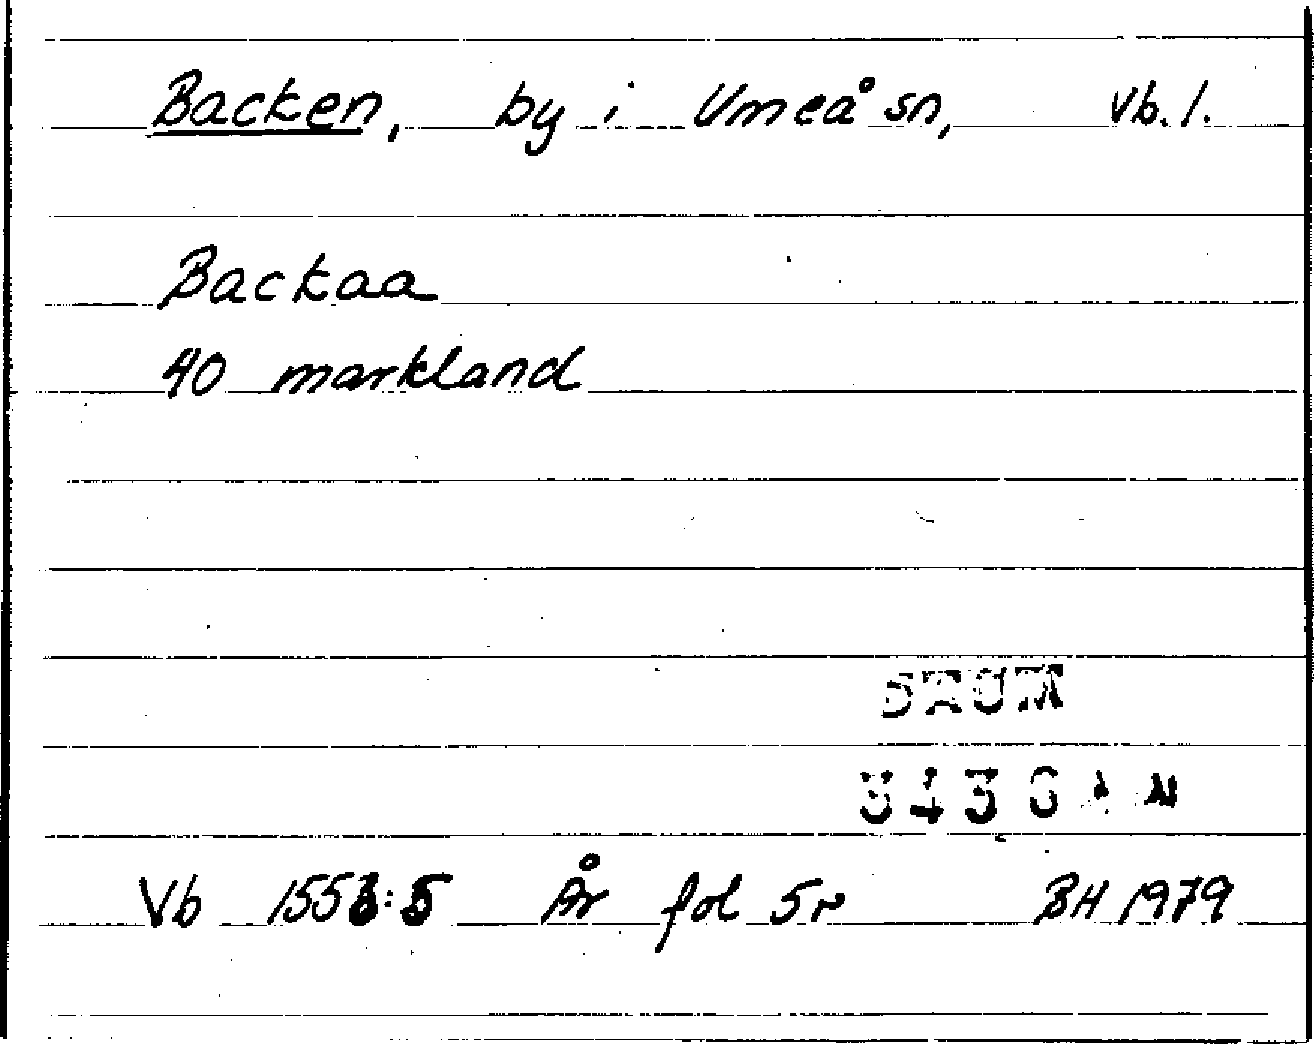 Backen, by i Umeå sn, Vb. l.
Backaa
40 markland
Vb 1553:5 År fol 5r BH 1979